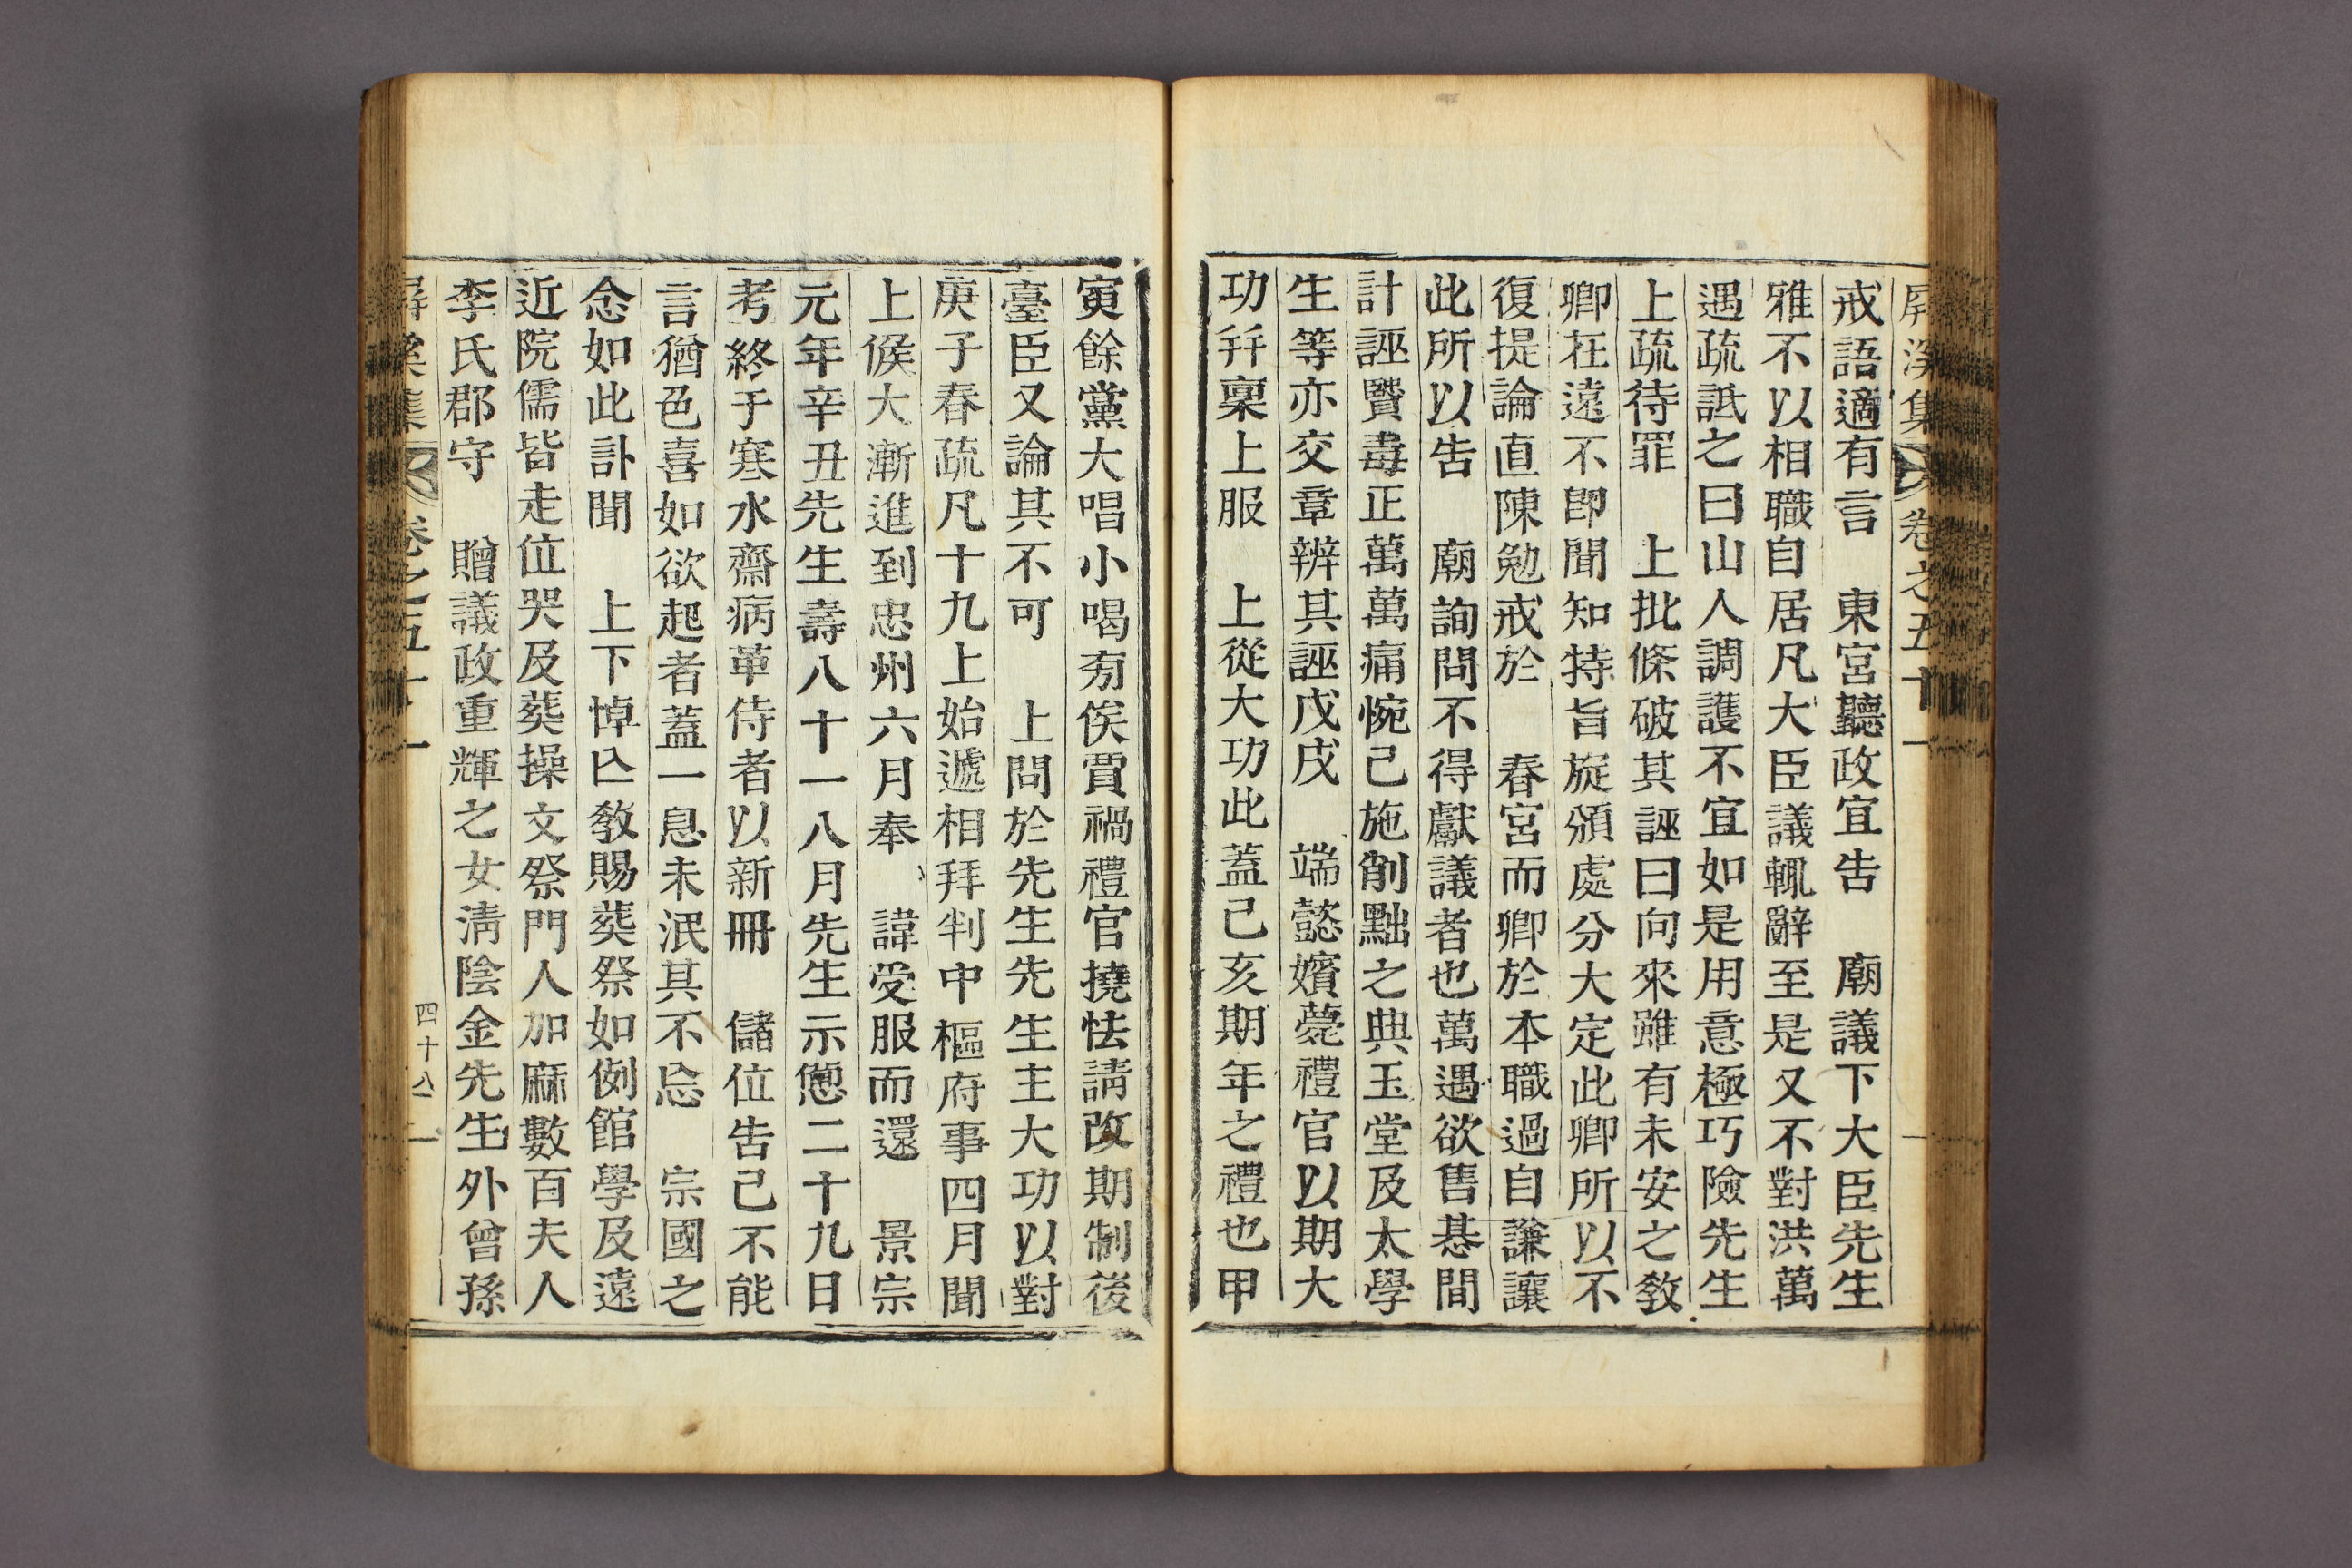 屛溪集 卷之五十一
戒語適有言 東宮聽政宜告 廟議下大臣先生
雅不以相職自居凡大臣議輒辭至是又不對洪萬
遇疏詆之曰山人調護不宜如是用意極巧險先生
上疏待罪 上批條破其誣曰向來雖有未安之敎
卿在遠不卽聞知特旨旋頒處分大定此卿所以不
復提論直陳勉戒於 春宮而卿於本職過自謙讓
此所以告 廟詢問不得獻議者也萬遇欲售惎間
計誣賢毒正萬萬痛惋已施削黜之典玉堂及太學
生等亦交章辨其誣戊戌 端懿嬪薨禮官以期大
功幷稟上服 上從大功此蓋己亥期年之禮也甲
寅餘黨大唱小喝旁俟賈禍禮官撓怯請改期制後
臺臣又論其不可 上問於先生先生主大功以對
庚子春疏凡十九上始遞相拜判中樞府事四月聞
上候大漸進到忠州六月奉 諱受服而還 景宗
元年辛丑先生壽八十一八月先生示憊二十九日
考終于寒水齋病革侍者以新冊 儲位告已不能
言猶色喜如欲起者蓋一息未泯其不忘 宗國之
念如此訃聞 上下悼亡敎賜葬祭如例館學及遠
近院儒皆走位哭及葬操文祭門人加麻數百夫人
李氏郡守 贈議政重輝之女淸陰金先生外曾孫
屛溪集 卷之五十一 四十八